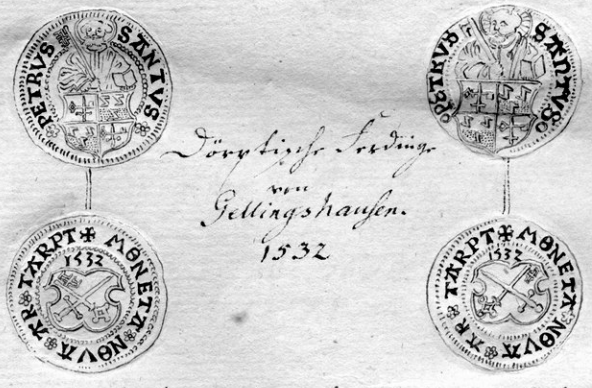 PETRVS SANTVS
PETRVS SANTVS
Dörptische Ferdinge
von
Gellingshausen.
1532
MONETA NOVA AR TARPT
1532
MONETA NOVA AR TARPT
1532